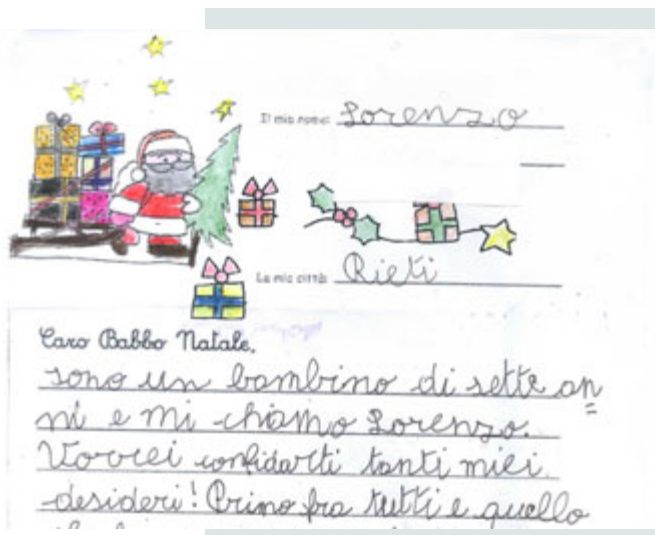 Il mio nome: Lorenzo
La mia città: Rieti
Caro Babbo Natale,
sono un bambino di sette an
ni e mi chiamo Lorenzo.
Vorrei confidarti tanti miei
desideri! Primo fra tutti e quello